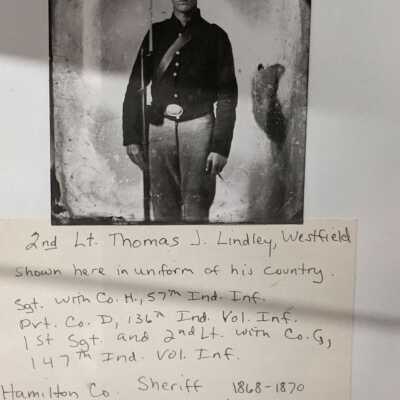 2nd Lt. Thomas J. Lindley, Westfield
shown here in uniform of his country.
Sgt. with Co. H., 57th Ind. Inf.
Pvt. Co. D, 136th Ind. Vol. Inf.
1st Sgt. and 2nd Lt. with Co. G,
147th Ind. Vol. Inf.
Hamilton Co. Sheriff 1868-1870